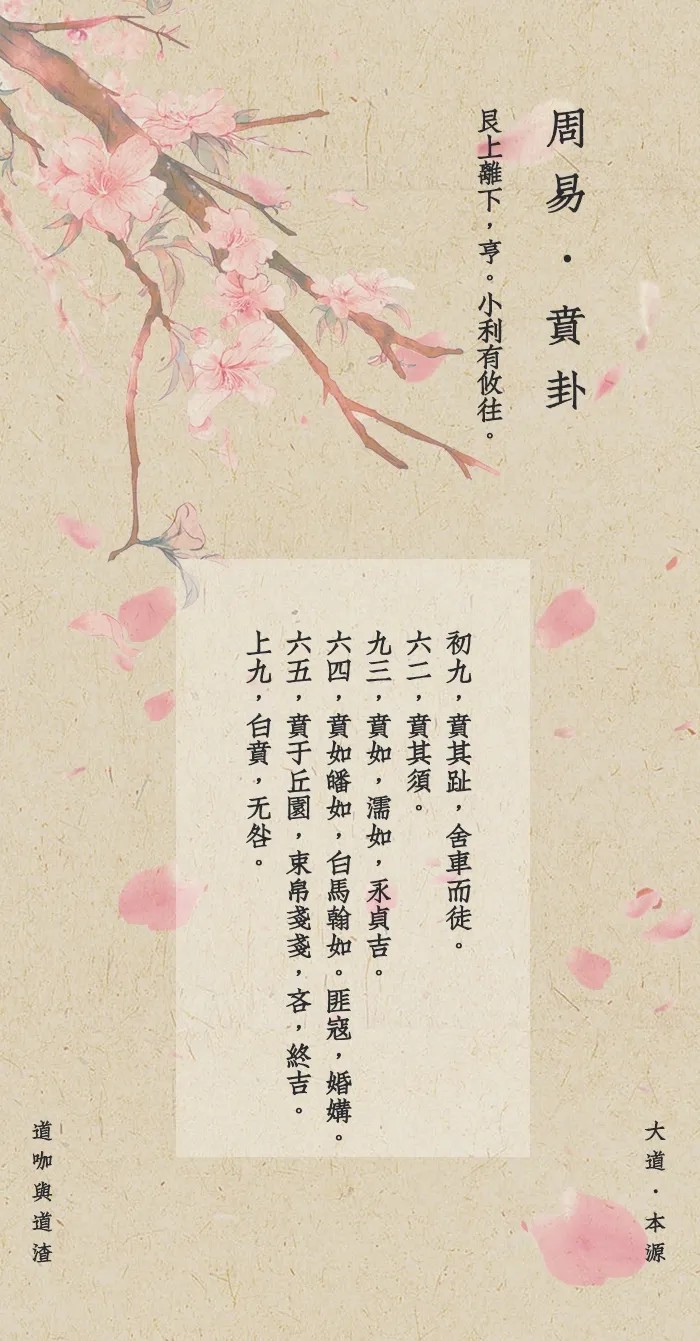 周易·賁卦
艮上離下，亨。小利有攸往。
初九，賁其趾，舍車而徒。
六二，賁其須。
九三，賁如，濡如，永貞吉。
六四，賁如皤如，白馬翰如。匪寇，婚媾。
六五，賁于丘園，束帛戔戔，吝，終吉。
上九，白賁，无咎。
大道·本源
道咖與道渣